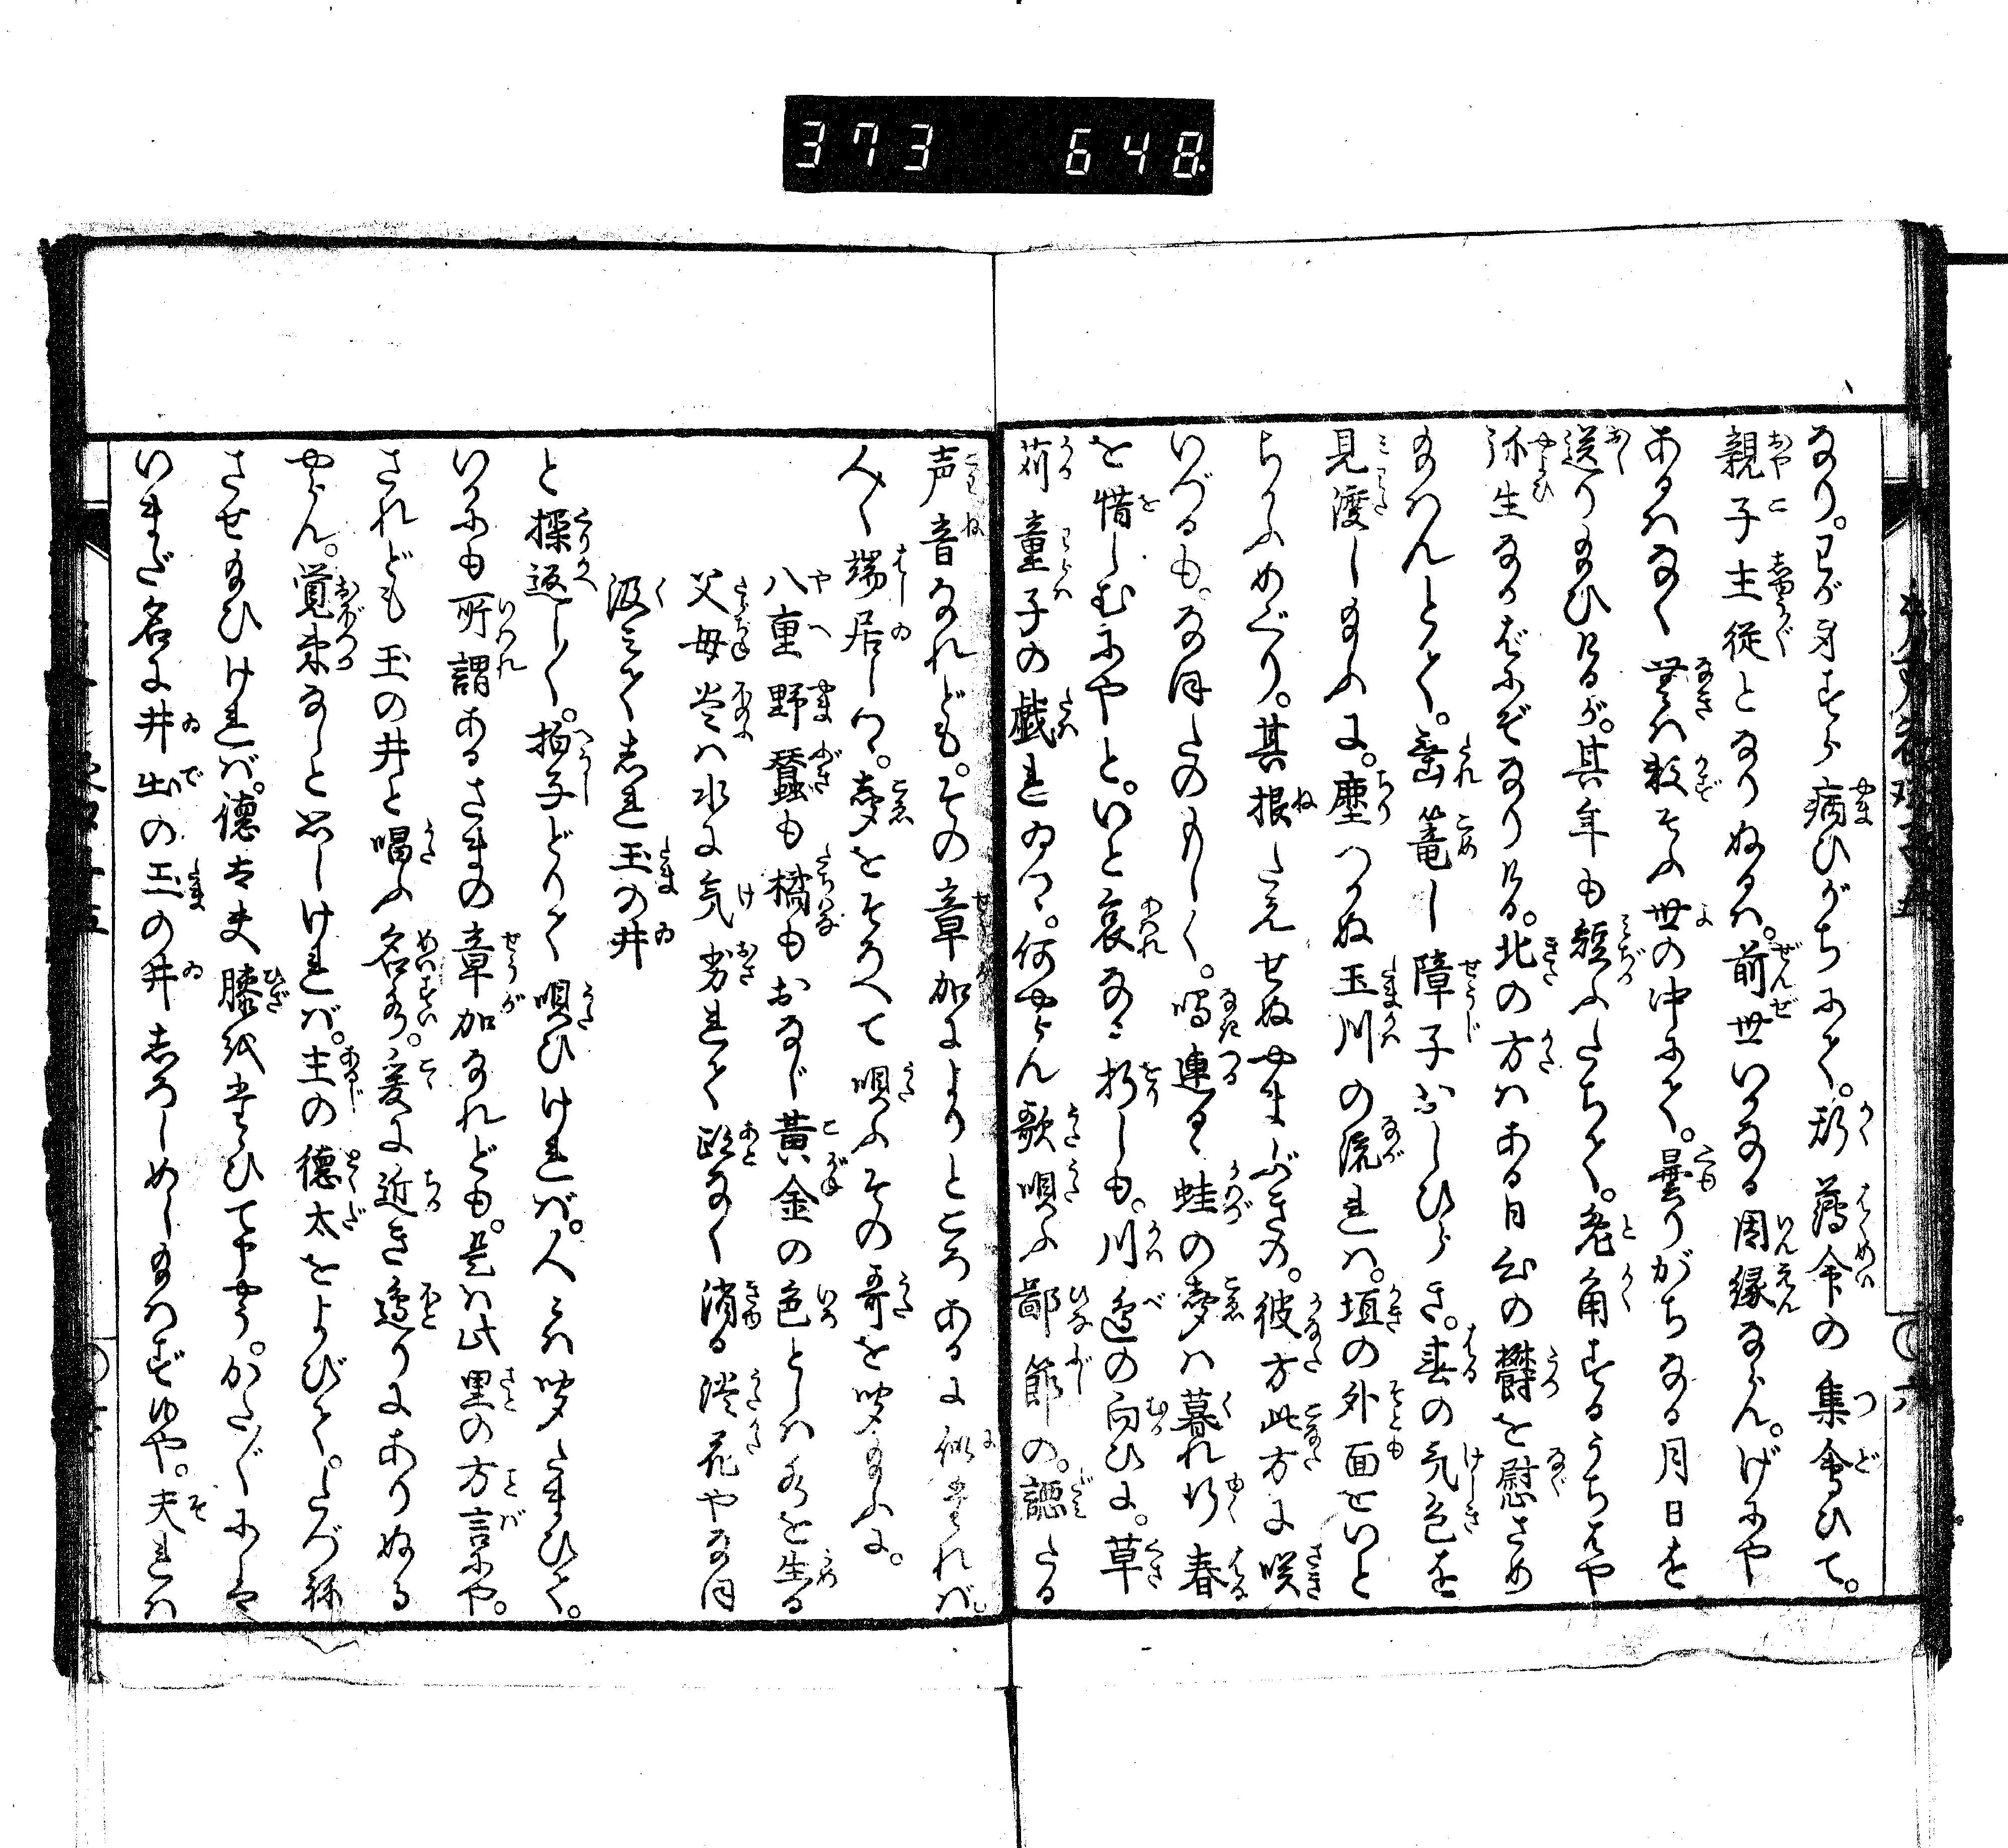 373 648
なり。わが身すら病ひがちにて。斯薄命の集會ひて。
親子主従となりぬるは。前世いかなる因縁ならん。げにや
あるはなく無は数そふ世の中にて。曇りがちなる月日を
送りたまひけるが。其年も短ふたちて。兎角するうちはや
弥生なかばにぞなりける。北の方はある日公の欝を慰さめ
たまはんとて。垂篭し障子おしひらき。春の気色を
見渡したまふに。塵つかぬ玉川の流れは。垣の外面をいと
ちかふめぐり。其根たえせぬやまぶきの。彼方此方に咲
いづるも。なほたのもしく。鳴連るゝ蛙の声は暮れ行春
を惜しむにやと。いと哀なる折しも。川辺の向ひに。草
苅童子の戯れゐつ。何やらん歌唄ふ鄙節の。謡たる
声音なれども。その章加によりところあるに似たれば。
人々端居しつゝ。声をそろへて唄ふその哥を聞たまふに。
八重野蚕も橘もおなじ黄金の色としは名を生る
父母尝は水に気劣れて跡なく消る淡花やなほ
汲みてしれ玉の井
と操返し〱。拍子どりて唄ひければ。人々は聞たまひて。
いかにも所謂あるさまの章加なれども。是は此里の方言にや。
されども玉の井と唱ふ名水。爰に近き邊りにありぬる
やらん。覚束なしと思しければ。主の徳太をよびて。たづね
させたまひければ。徳太夫膝
いまだ名に井出の玉の井しろしめしたまはずや。夫れは